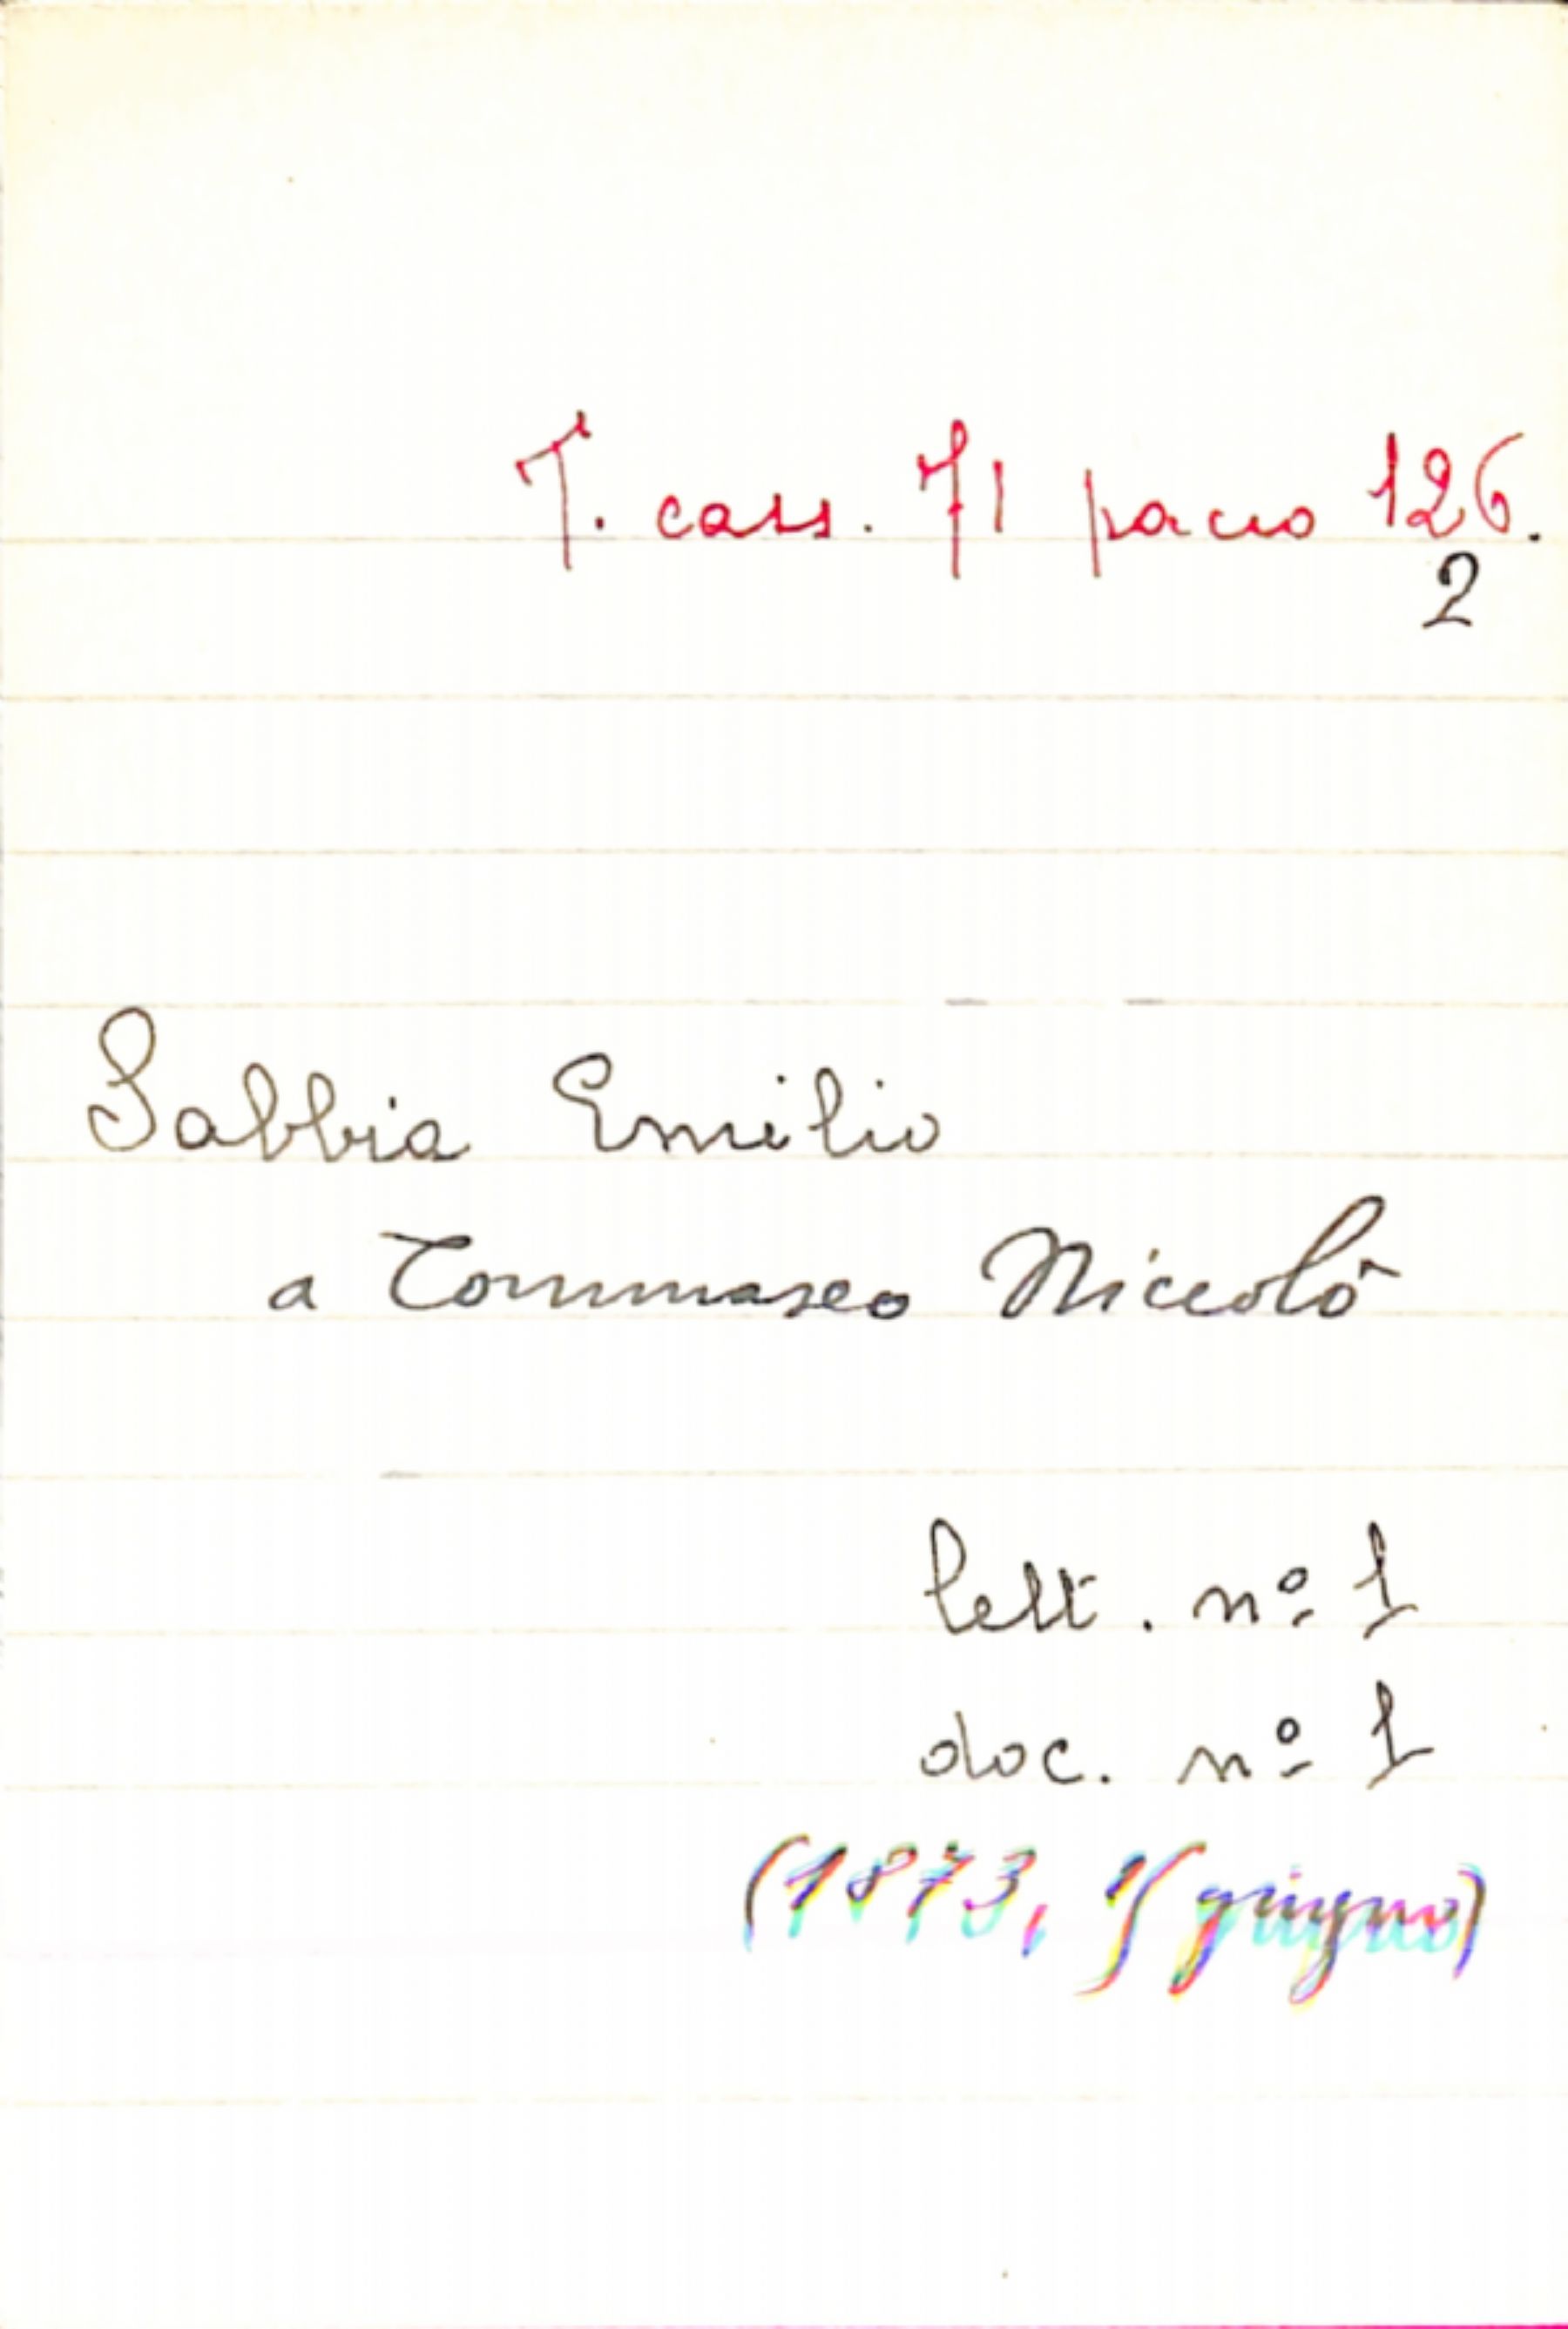 T. cass. 71 pacco 126.
2
Sabbia Emilio
a Tommaseo Niccolò
lett. nº 1
doc. nº 1
(1873, giugno)